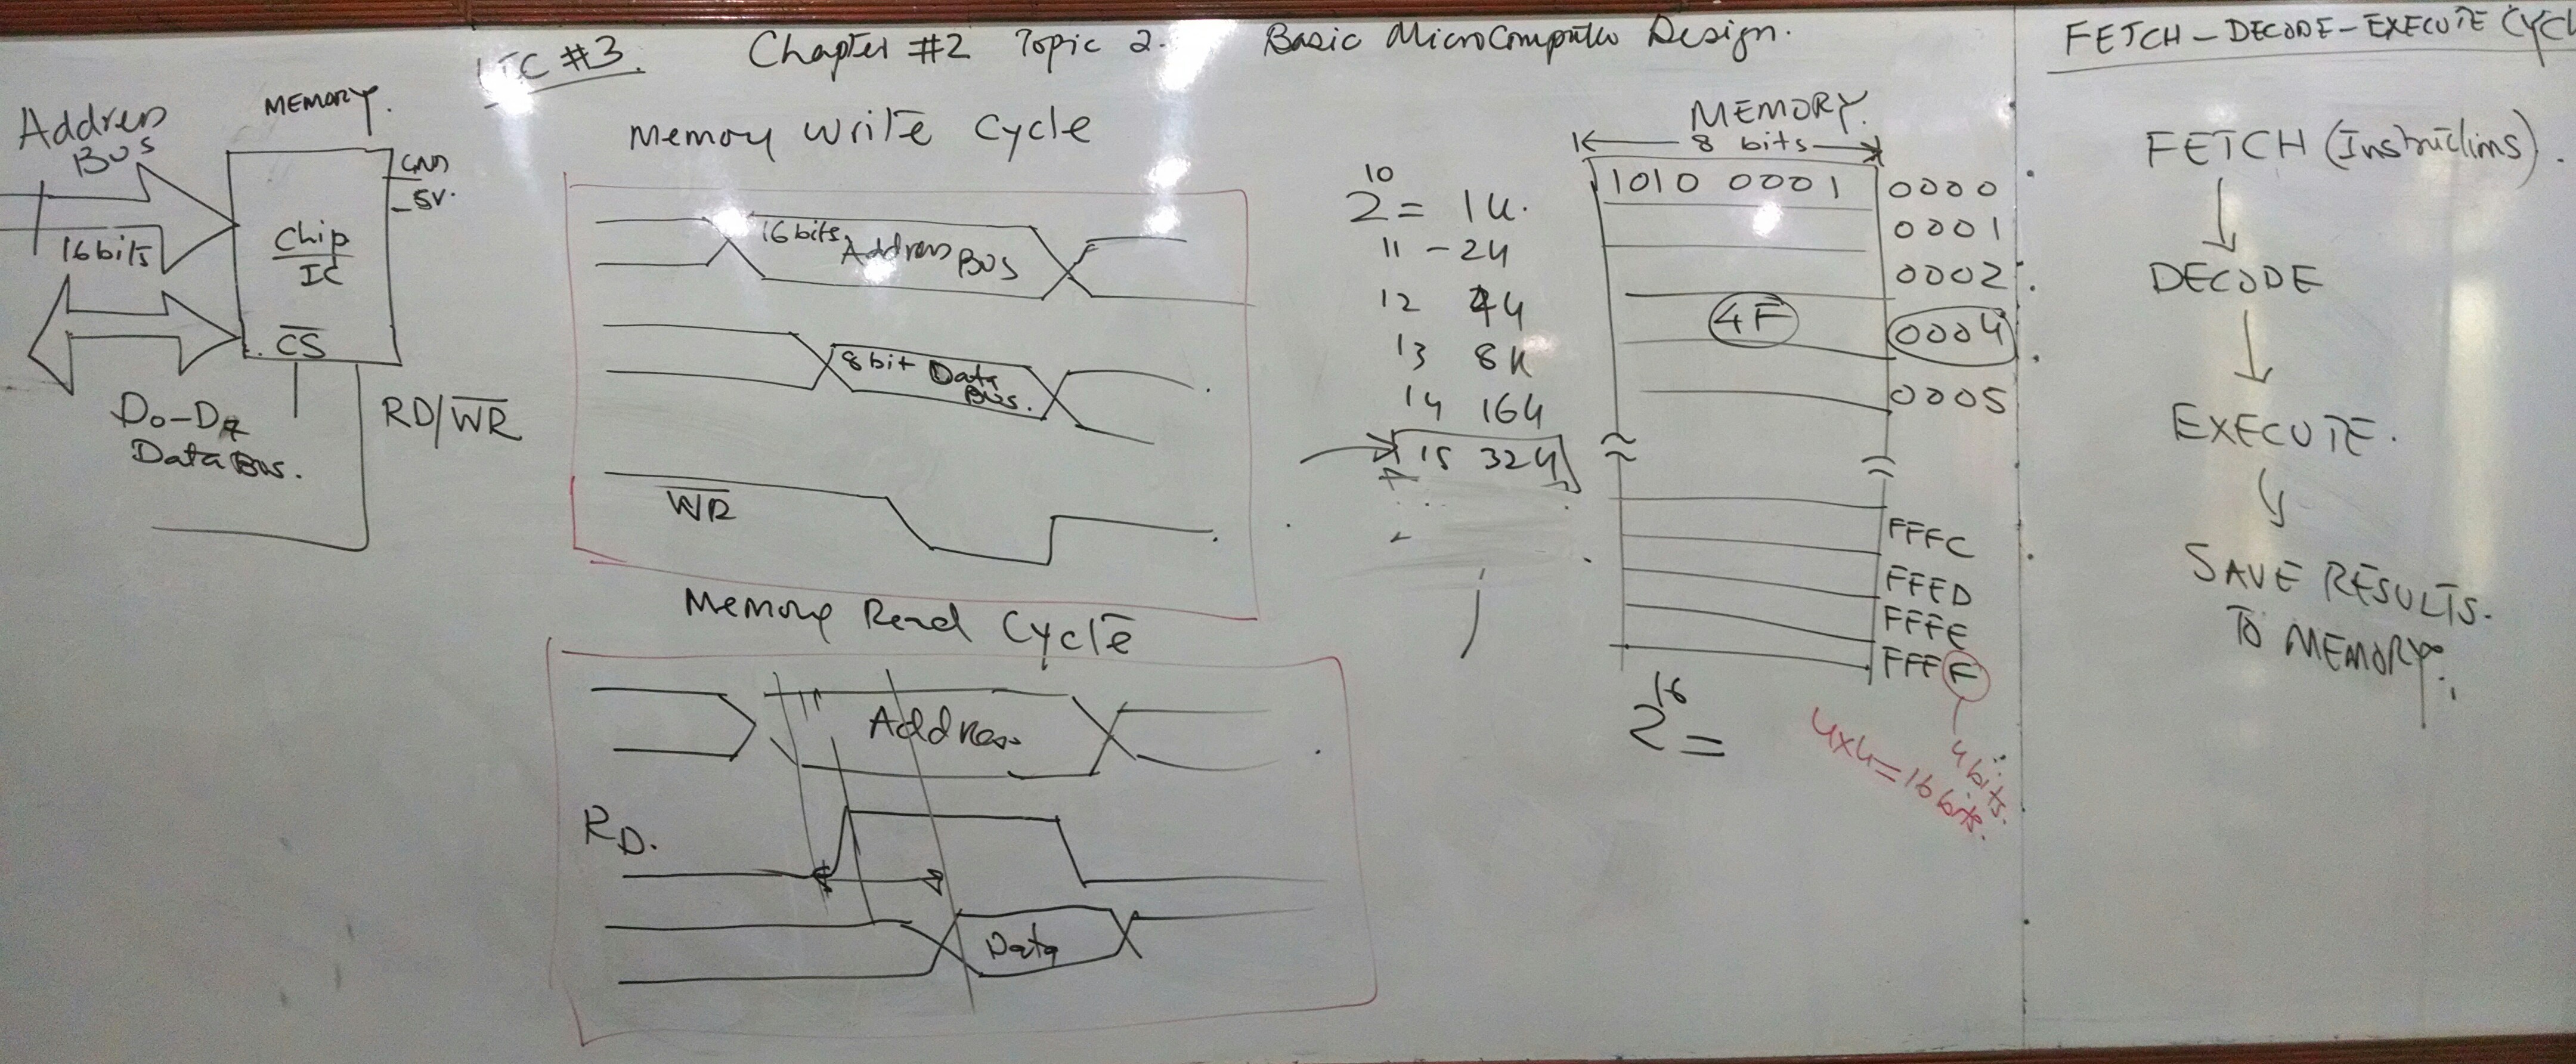 LEC #3. Chapter #2 Topic 2. Basic MicroComputer Design.
Address
Bus
16bits
MEMORY.
GND
5V.
Chip
IC
C̅S̅
D0-D7
Data Bus.
RD/W̅R̅
Memory Write Cycle
16bits Address Bus
8bit Data
Bus.
W̅R̅
Memory Read Cycle
Address
RD.
Data
2^10 = 1K.
11 - 2K
12 4K
13 8K
14 16K
15 32K
MEMORY.
8 bits
1010 0001 0000
0001
0002
4F 0004
0005
FFFC
FFFD
FFFE
FFFF
2^16 =
4 bits.
4x4=16 bits.
FETCH-DECODE-EXECUTE CYCL
FETCH (Instructions).
DECODE
EXECUTE.
SAVE RESULTS.
TO MEMORY.